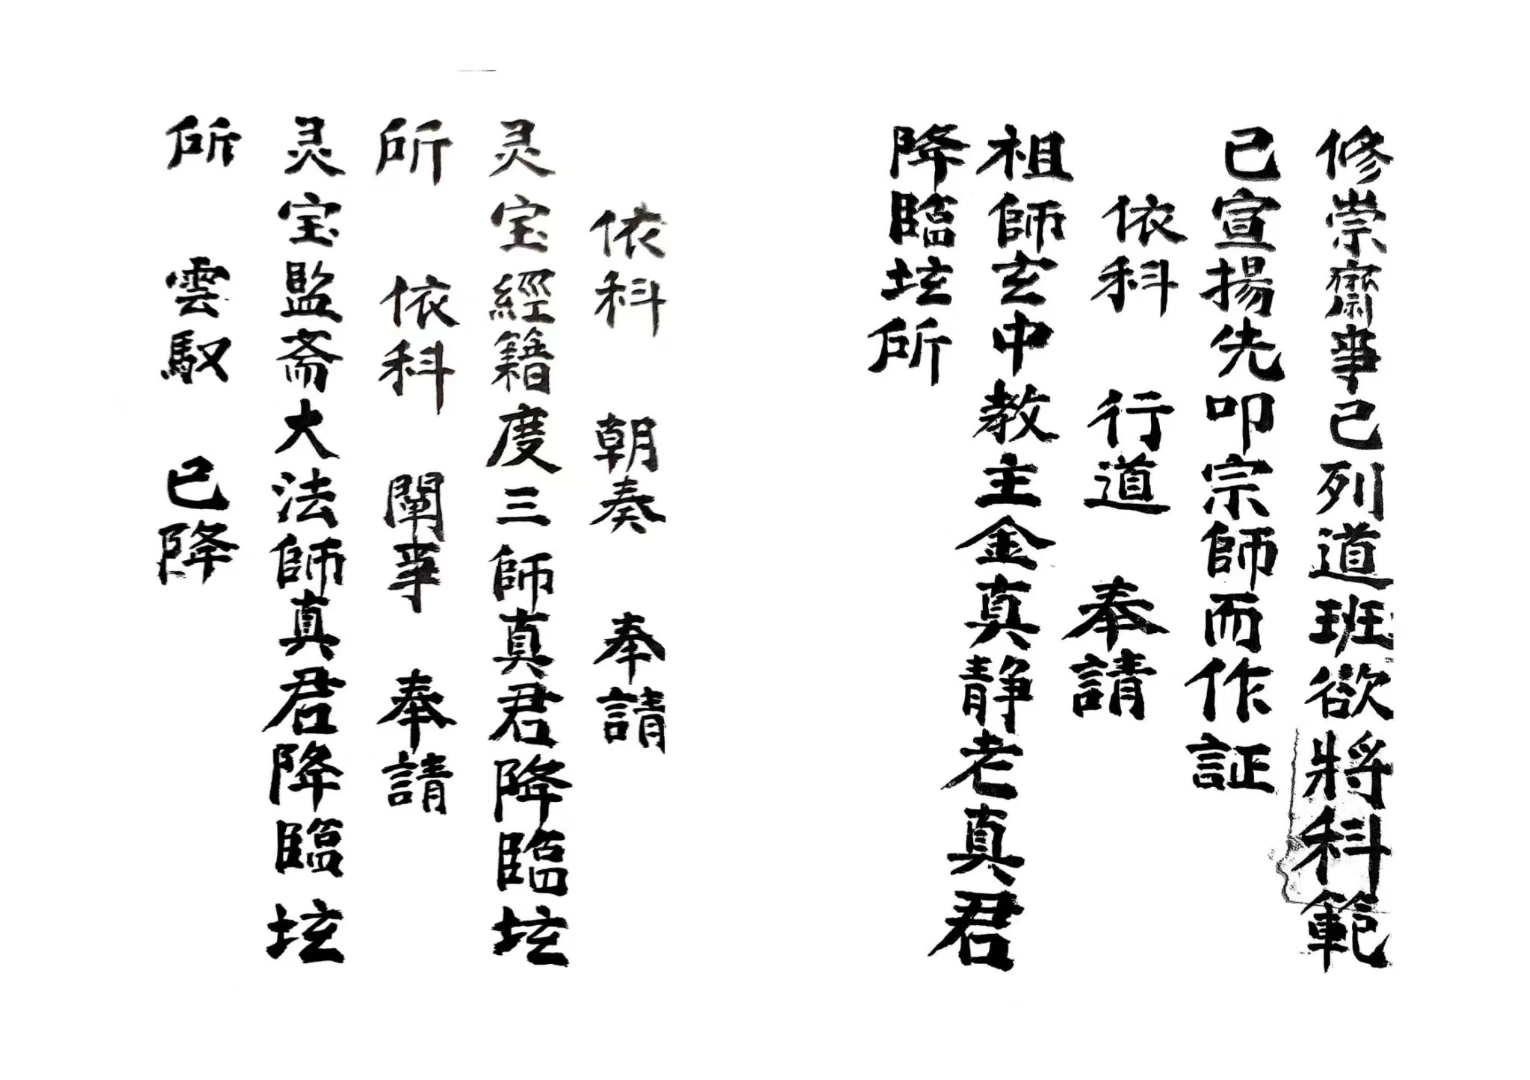 修崇齋事已列道班欲將科範
已宣揚先叩宗師而作証
依科 行道 奉請
祖師玄中教主金真靜老真君
降臨坛所
依科 朝奏 奉請
灵宝經籍度三師真君降臨坛
所 依科 闡事 奉請
灵宝監斋大法師真君降臨坛
所 雲馭 已降